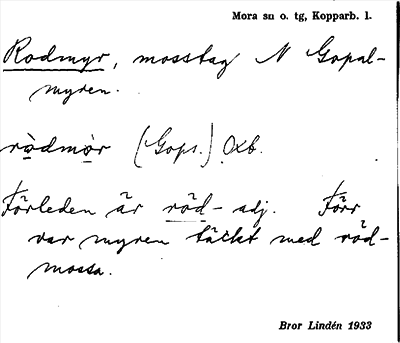 Mora sn o. tg, Kopparb. l.
Rodmyr, mosstag N Gopal-
myren.
rò̤dmò̤r (Gops.) Oxb.
Förleden är röd- adj. Förr
var myren täckt med röd-
mossa.
Bror Lindén 1933